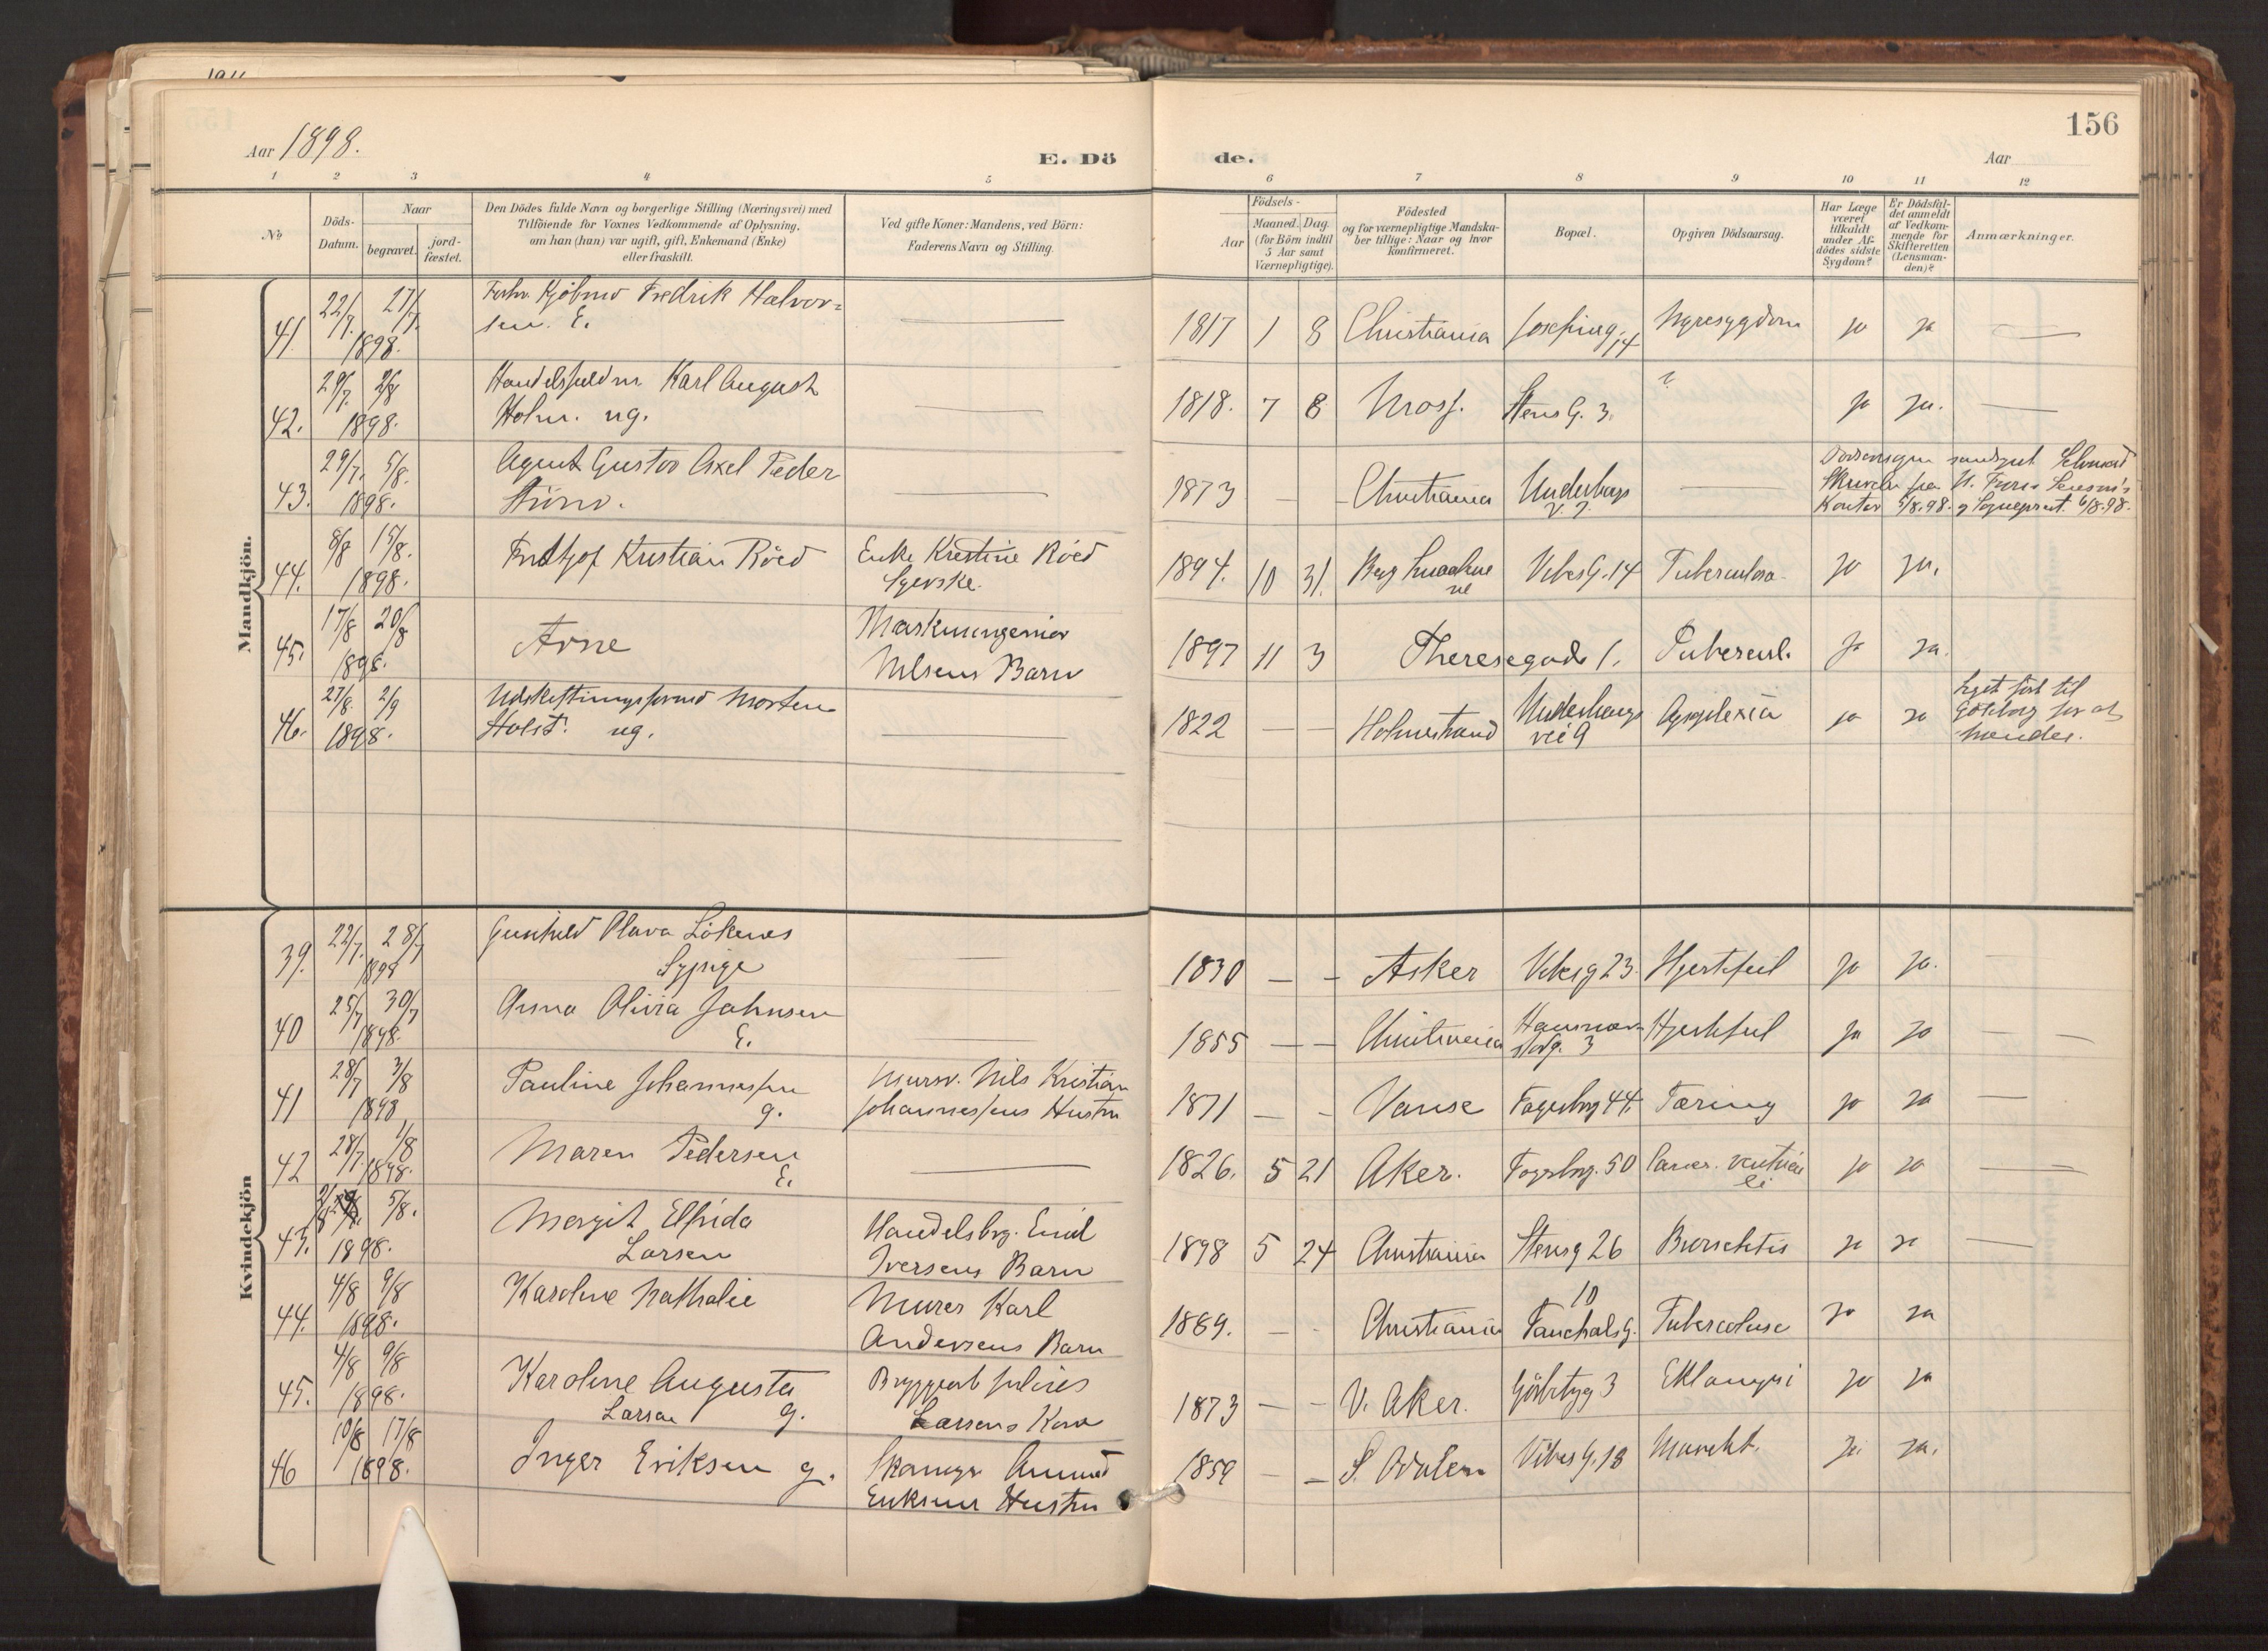 156
Aar 1898.
E. Dö de.
Aar
1 2 3 4 5 6 7 8 9 10 11 12
№
Döds-
Datum.
Naar
begravet.
jord-
fæstet.
Den Dödes fulde Navn og borgerlige Stilling (Næringsvei) med
Tilföiende for Voxnes Vedkommende af Oplysning,
om han (hun) var ugift, gift, Enkemand (Enke)
eller fraskilt.
Ved gifte Koner: Mandens, ved Börn:
Faderens Navn og Stilling.
Födsels-
Aar
Maaned.
Dag.
(for Börn indtil
5 Aar samt
Værnepligtige).
Födested
og for værnepligtige Mandska-
ber tillige: Naar og hvor
konfirmeret.
Bopæl.
Opgiven Dödsaarsag.
Har Læge
været
tilkaldt
under Af-
dödes sidste
Sygdom?
Er Dödsfal-
det anmeldt
af Vedkom-
mende for
Skifteretten
(Lensman-
den)?
Anmærkninger.
Mandkjön.
41. 22/7. 27/7. 1898. Fredrik Halvor=
sen. E. — 1817 1 8 Christiania Josefineg. 14 Nyresygdom ja ja —
42. 29/7. 2/8 1898. Karl August
Holm. ug. — 1818. 7 8 Moss. Stens G. 3. ? ja ja. —
43. 29/7. 5/8. 1898. Agent Gustav Axel Peder
— 1873 — — Christiania Underhaugs
V. 7. —
Kontor 5/8.98. og Sogneprest 6/8.98.
44. 8/8 15/8. 1898. Fridtjof Kristian Röed Enke Krestine Röed
Syerske. 1894. 10 31. Vibes G. 14 Tuberculose ja ja.
45. 17/8 20/8 1898. Arne Maskiningeniör
Nilsens Barn 1897 11 3 Theresegade 1. Tubercul. ja ja.
46. 27/8. 2/9 1898. Udskiftningsformd Morten
Holst. ug. — 1822 — — Holmestrand Underhaugs
vei 9 Apoplexia ja ja Liget fört til
Göteborg for at
brændes.
Kvindekjön
39. 22/7. 28/7 1898 Gunhild Olava Lökenes
Sypige — 1830 — — Asker Vibesg 23. Hjertefeil ja ja. —
40 25/7 30/7 1898. Anna Olivia Johnsen
E. — 1855 — — Christiania Hammer-
stadg. 3 Hjertefeil ja ja — —
41 28/7 3/8 1898 Pauline Johannessen
g. Mursv. Nils Kristian
Johannessens Hustru 1871 — — Vanse Fagerborg 44. Tæring ja ja —
42 28/7. 1/8 1898. Maren Pedersen
E. — 1826. 5 21 Aker. Fagerborg. 50 Cancer. ventricu
li ja ja —
43. 2/8 5/8. 1898. Margit Elfrida
Larsen Handelsbg. Emil
Iversens Barn 1898 5 24 Christiania Stensg 26 Bronchitis ja ja —
44. 4/8 9/8 1898. Karoline Nathalie Murer Karl
Andersens Barn 1869. — — Christiania 10
Fauchalds G. Tuberculose ja ja
45. 4/8 9/8 1898. Karoline Augusta
Larsen g. Bryggearb Julius
Larsens Kone 1873 — — V. Aker. Görbitzg 3 Eklampsi ja ja
46 10/8 17/8 1898. Inger Eriksen g. Skomgr Amund
Eriksens Hustru 1859 — — S. Odalen Vibes G. 18 ja. ja.